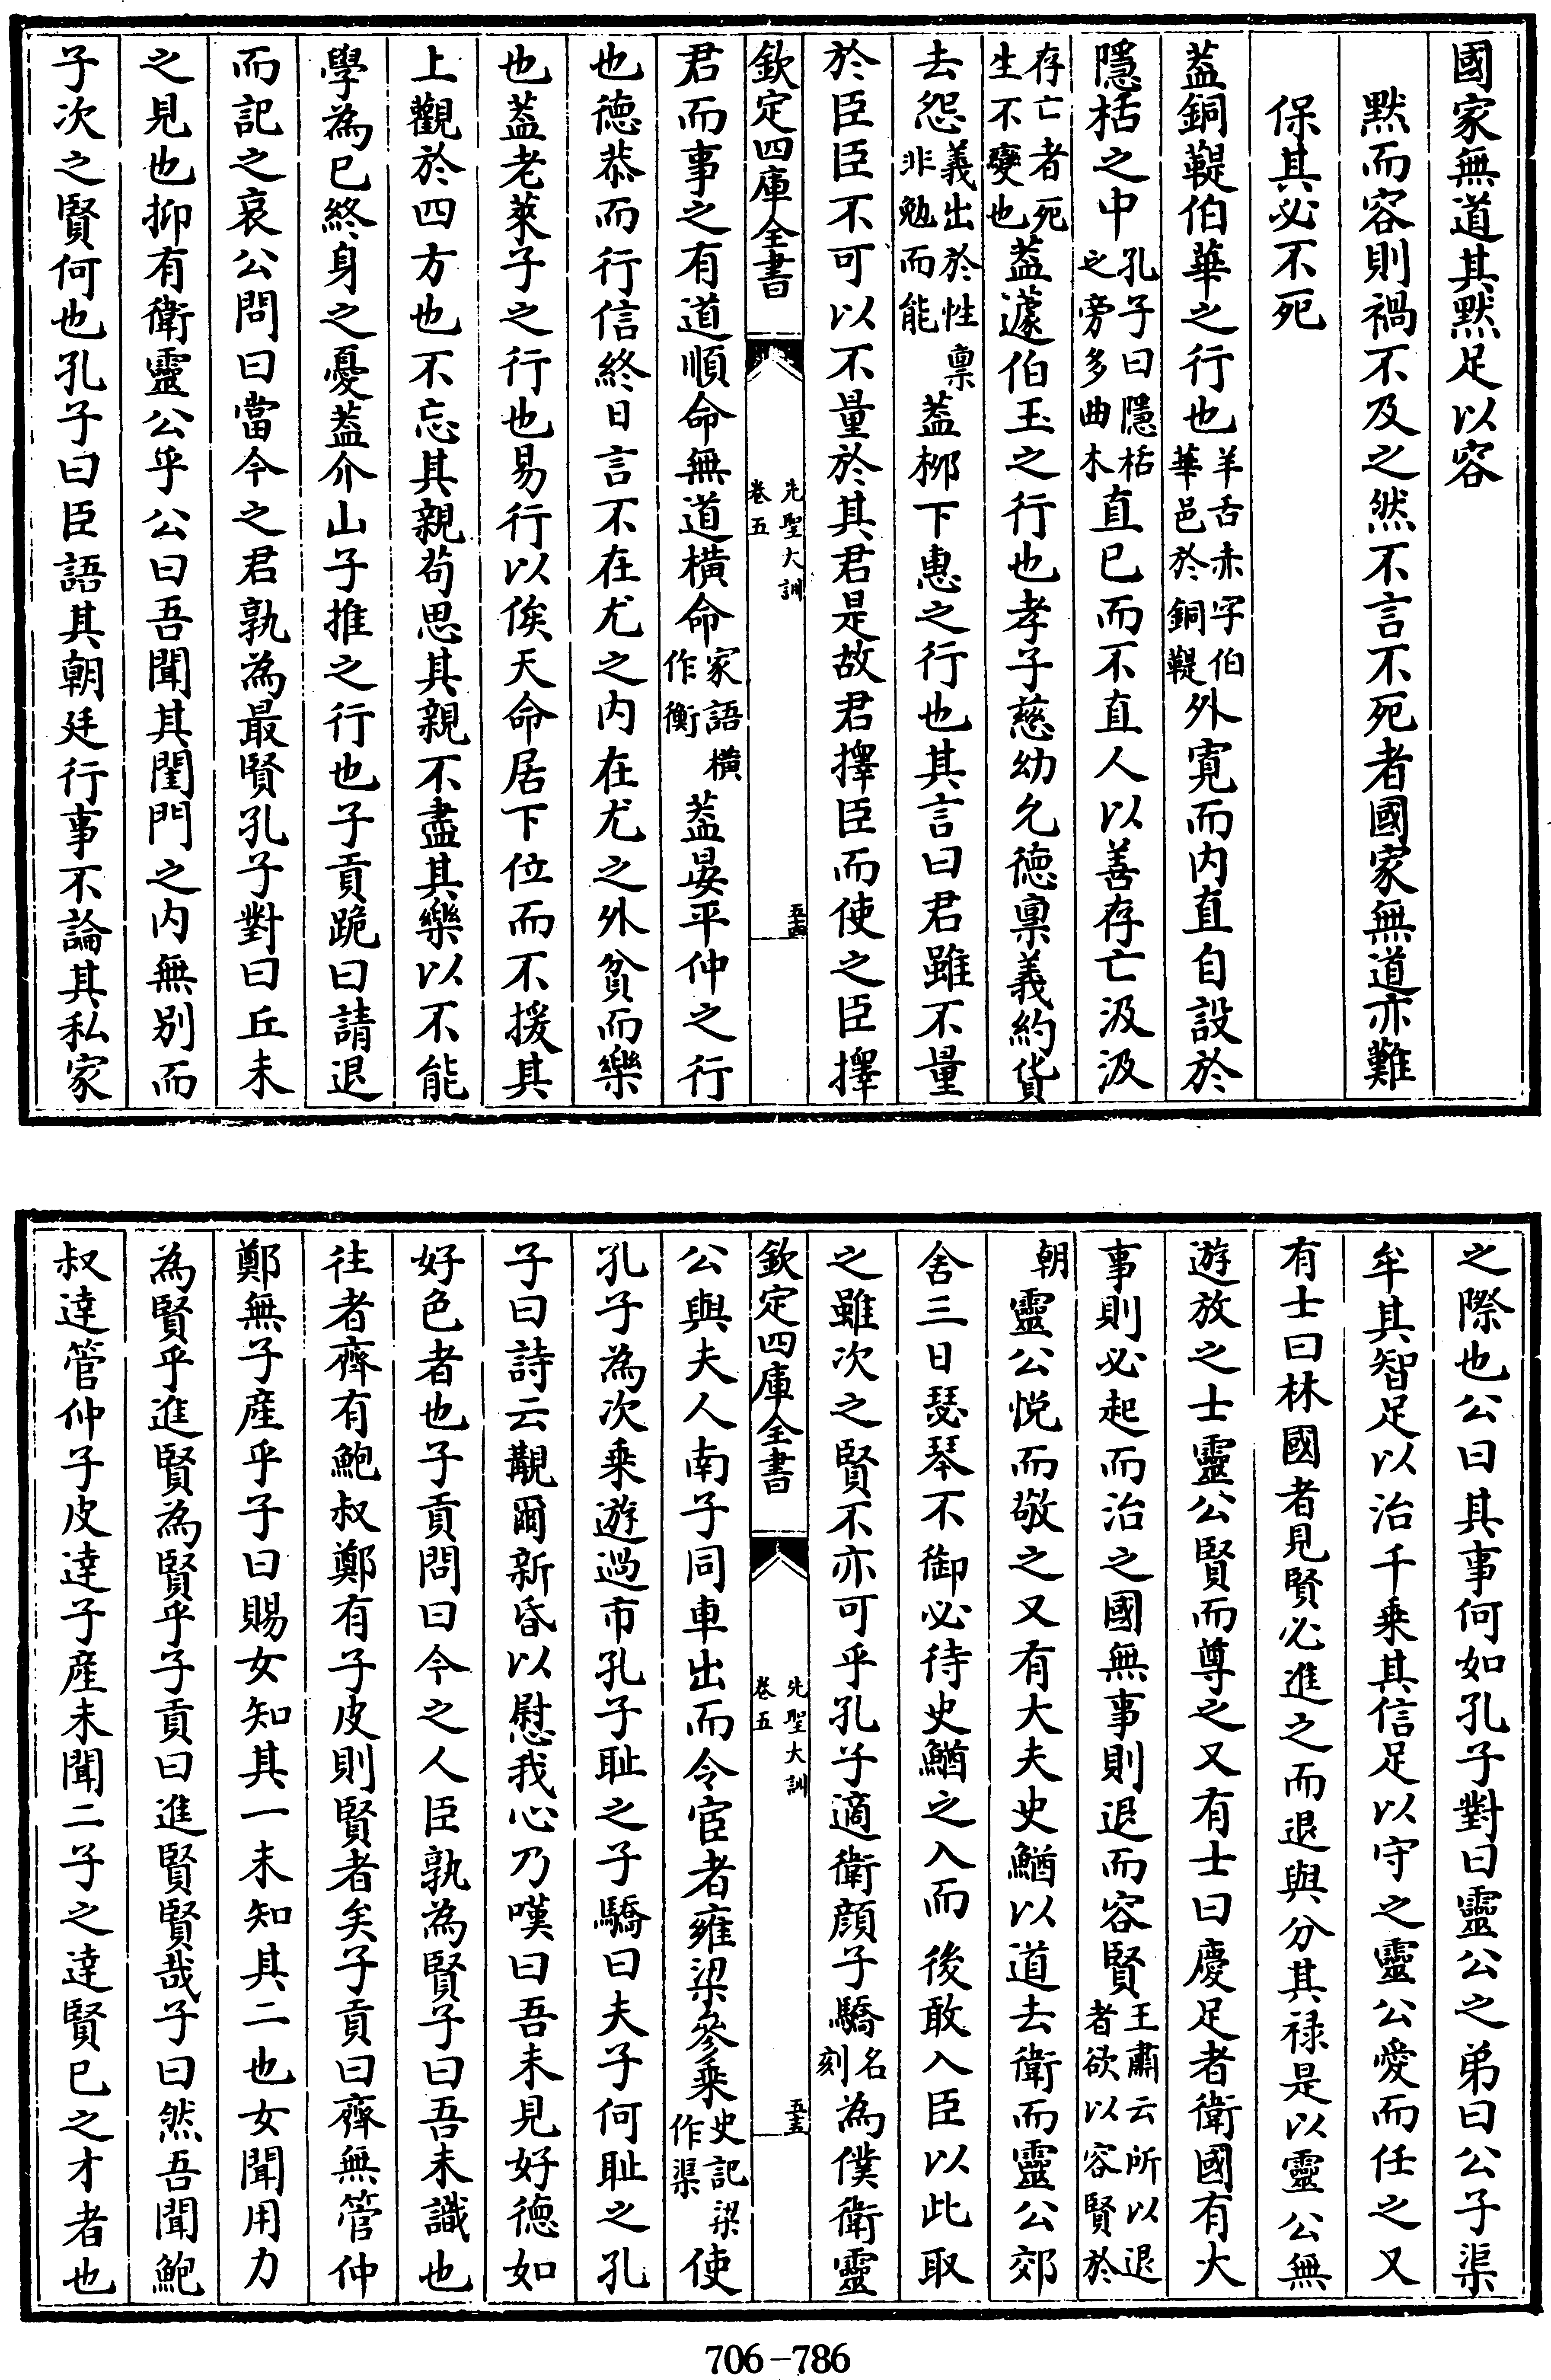 國家無道其默足以容
默而容則禍不及之然不言不死者國家無道亦難
保其必不死
蓋銅鞮伯華之行也羊舌赤字伯華邑於銅鞮外寛而内直自設於
隱栝之中孔子曰隱栝之旁多曲木直已而不直人以善存亡汲汲
存亡者死生不變也蓋蘧伯玉之行也孝子慈幼允德稟義約貨
去怨義出於性稟非勉而能蓋桞下惠之行也其言曰君雖不量
於臣臣不可以不量於其君是故君擇臣而使之臣擇
欽定四庫全書 先聖大訓 卷五 五十四
君而事之有道順命無道横命家語横作衡蓋晏平仲之行
也德恭而行信終日言不在尤之内在尤之外貧而樂
也蓋老萊子之行也易行以俟天命居下位而不援其
上觀於四方也不忘其親茍思其親不盡其樂以不能
學為已終身之憂蓋介山子推之行也子貢跪曰請退
而記之哀公問曰當今之君孰為最賢孔子對曰丘未
之見也抑有衛靈公乎公曰吾聞其閨門之内無别而
子次之賢何也孔子曰臣語其朝廷行事不論其私家
之際也公曰其事何如孔子對曰靈公之弟曰公子渠
牟其智足以治千乗其信足以守之靈公愛而任之又
有士曰林國者見賢必進之而退與分其禄是以靈公無
遊放之士靈公賢而尊之又有士曰慶足者衛國有大
事則必起而治之國無事則退而容賢王肅云所以退者欲以容賢於
朝靈公悦而敬之又有大夫史鰌以道去衛而靈公郊
舍三日瑟琴不御必待史鰌之入而後敢入臣以此取
之雖次之賢不亦可乎孔子適衛顔子驕名刻為僕衛靈
欽定四庫全書 先聖大訓 卷五 五十五
公與夫人南子同車出而令宦者雍梁參乗史記梁作渠使
孔子為次乗遊過市孔子耻之子驕曰夫子何耻之孔
子曰詩云覯爾新昏以慰我心乃嘆曰吾未見好德如
好色者也子貢問曰今之人臣孰為賢子曰吾未識也
往者齊有鮑叔鄭有子皮則賢者矣子貢曰齊無管仲
鄭無子產乎子曰賜女知其一未知其二也女聞用力
為賢乎進賢為賢乎子貢曰進賢賢哉子曰然吾聞鮑
叔達管仲子皮達子產未聞二子之達賢已之才者也
706-786